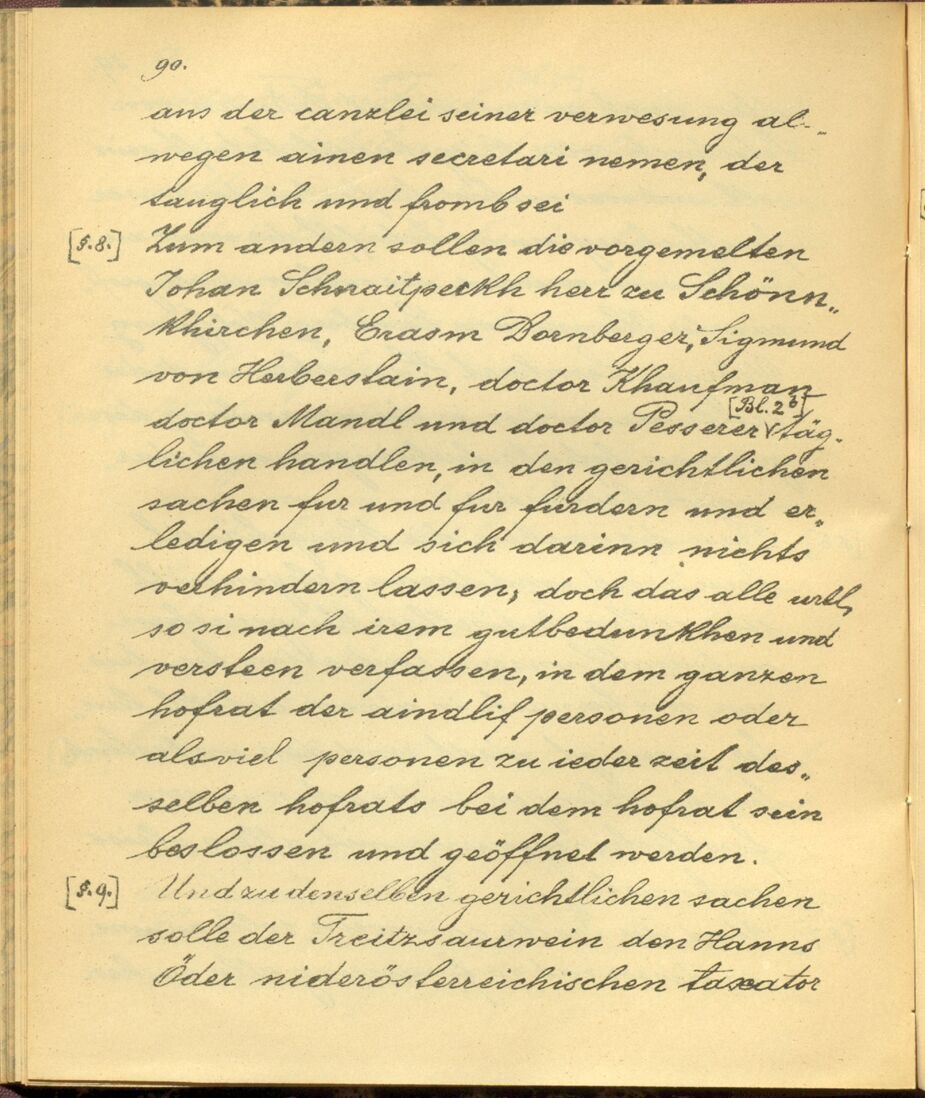 90.
aus der canzlei seiner verwesung al-„
wegen ainen secretari nemen, der
tauglich und fromb sei
[§.8.] Zum andern sollen die vorgemelten
Johan Schnaitpeckh herr zu Schönn„
khirchen, Erasm Dornberger, Sigmund
von Herberstain, doctor Khaufman
[Bl. 2b]
doctor Mandl und doctor Pesserer täg-
lichen handlen, in den gerichtlichen
sachen fur und fur furdern und er„
ledigen und sich darinn nichts
verhindern lassen, doch das alle urtl,
so si nach irem gutbedunkhen und
versteen verfassen, in dem ganzen
hofrat der aindlif personen oder
alsviel personen zu ieder zeit des„
selben hofrats bei dem hofrat sein
beslossen und geöffnet werden.
[§.9.] Und zu denselben gerichtlichen sachen
solle der Treitzsaurwein den Hanns
Öder niderösterreichischen taxator